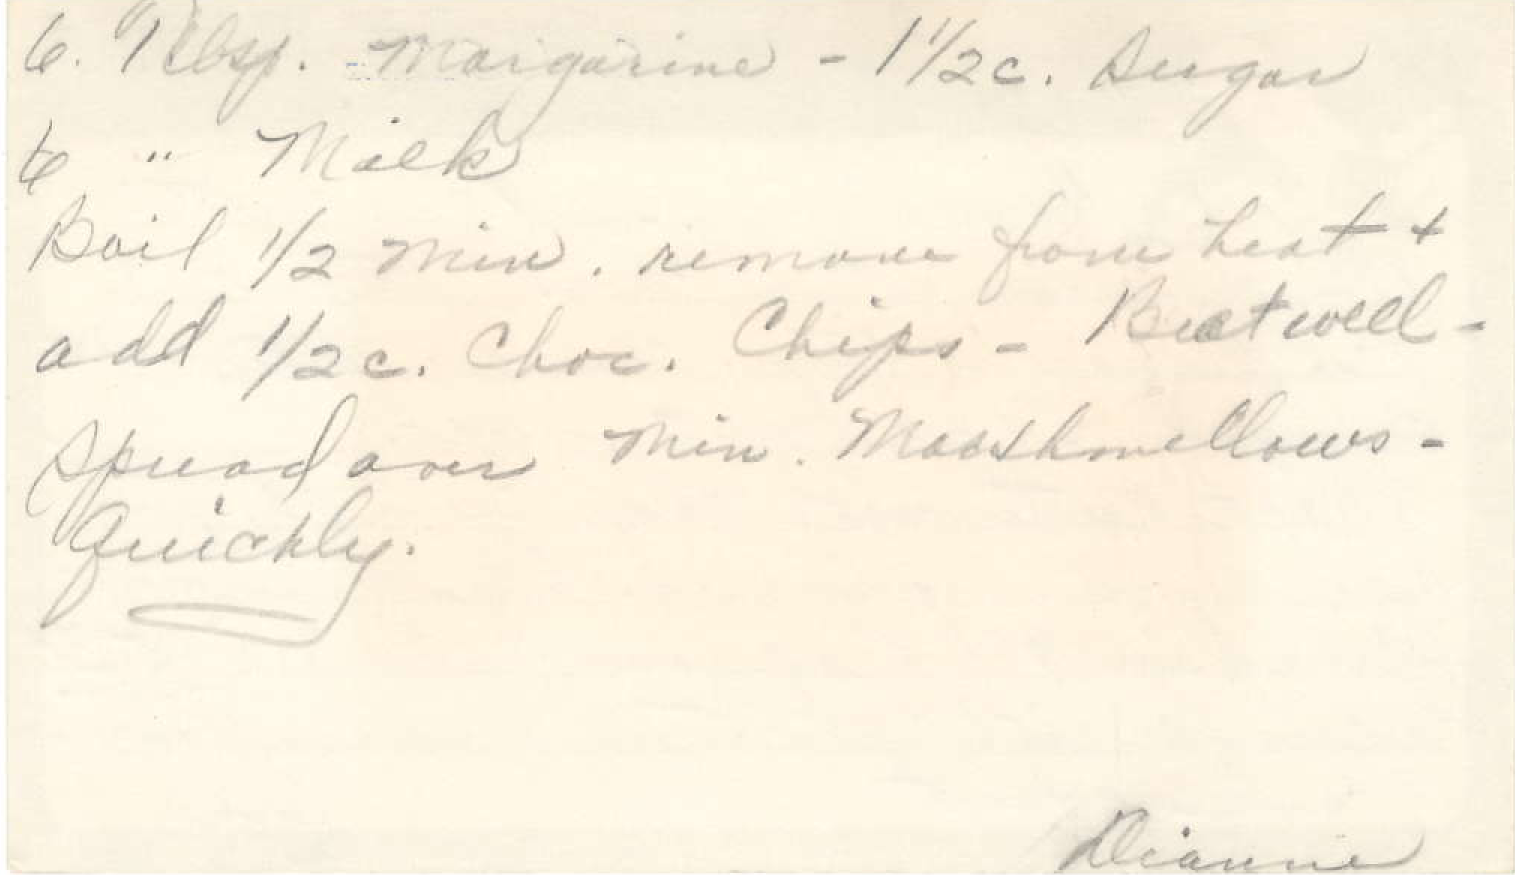 6. Tbsp. Margarine - 1 1/2 c. Sugar
6 " Milk
Boil 1/2 min. remove from heat +
add 1/2 c. Choc. Chips - Beat well -
Spread over Min. Marshmellows -
Quickly.
Dianne